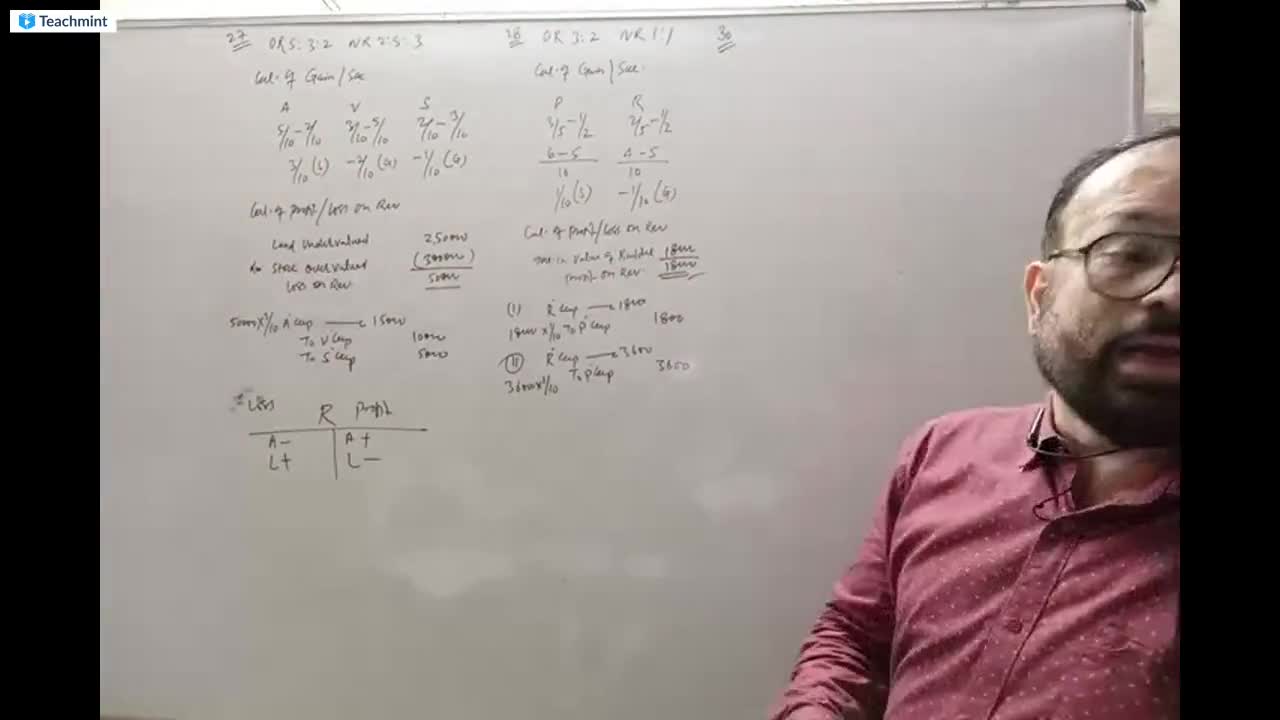 Teachmint
27 OR 5:3:2 NR 2:5:3
Cal. of Gain/Sac
A V S
5/10-2/10 3/10-5/10 2/10-3/10
3/10(S) -2/10(G) -1/10(G)
Cal. of Profit/Loss on Rev
Land undervalued 25000
overvalued (30000)
Loss on Rev 5000
A's Cap 1500
To V's Cap 1000
To S's Cap 500
Loss R Profit
A- A+
L+ L-
28 OR 3:2 NR 1:1
Cal. of Gain/Sac.
P R
3/5-1/2 2/5-1/2
6-5 4-5
10 10
1/10(S) -1/10(G)
Cal. of Profit/Loss on Rev
in Value of 18000
Profit on Rev. 18000
(I) R's Cap 1800
18000x1/10 To P's Cap 1800
(II) R's Cap 3600
36000x1/10 To P's Cap 3600
30